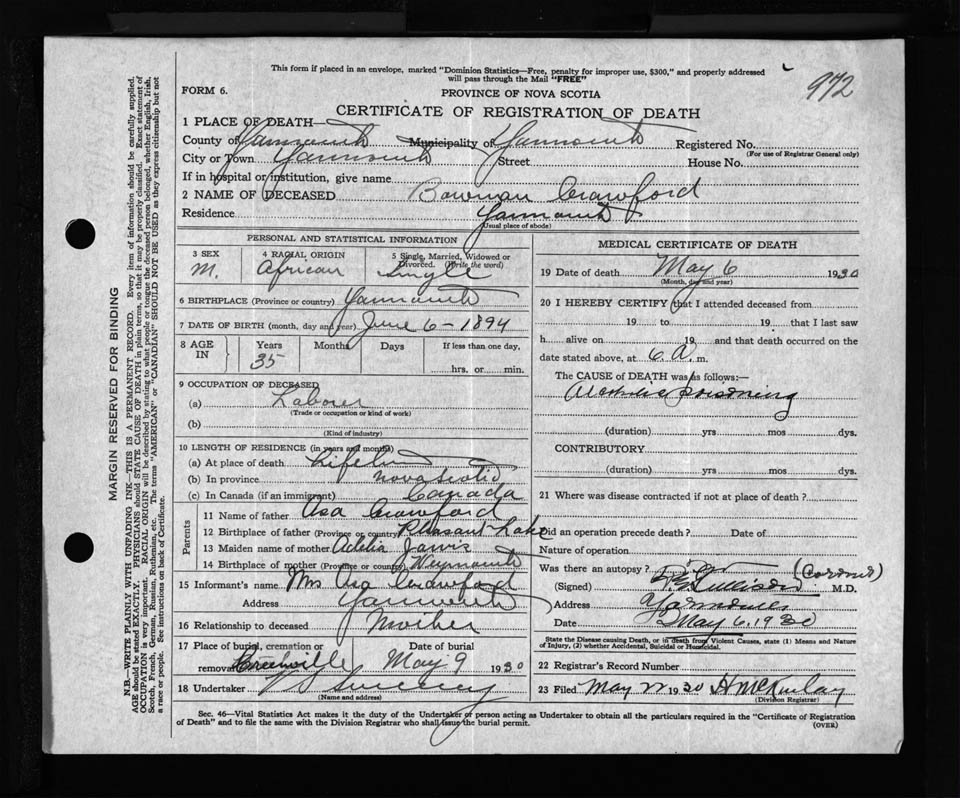 This form if placed in an envelope, marked "Dominion Statistics—Free, penalty for improper use, $300," and properly addressed
will pass through the Mail "FREE"
972
FORM 6.
PROVINCE OF NOVA SCOTIA
CERTIFICATE OF REGISTRATION OF DEATH
1 PLACE OF DEATH—
County of Yarmouth Municipality of Yarmouth Registered No.
(For use of Registrar General only)
City or Town Yarmouth Street House No.
If in hospital or institution, give name
2 NAME OF DECEASED Bowman Crawford
Residence Yarmouth
(Usual place of abode)
PERSONAL AND STATISTICAL INFORMATION
3 SEX 4 RACIAL ORIGIN 5 Single, Married, Widowed or
Divorced. (Write the word)
M. African Single
6 BIRTHPLACE (Province or country) Yarmouth
7 DATE OF BIRTH (month, day and year) June 6 - 1894
8 AGE IN Years Months Days If less than one day,
35 hrs. or min.
9 OCCUPATION OF DECEASED
(a) Laborer
(Trade or occupation or kind of work)
(b)
(Kind of industry)
10 LENGTH OF RESIDENCE (in years and months)
(a) At place of death Lifetime
(b) In province Nova Scotia
(c) In Canada (if an immigrant) Canada
Parents
11 Name of father Asa Crawford
12 Birthplace of father (Province or country) Pleasant Lake
13 Maiden name of mother Adelia Jarvis
14 Birthplace of mother (Province or country) Weymouth
15 Informant's name Mrs Asa Crawford
Address Yarmouth
16 Relationship to deceased Mother
17 Place of burial, cremation or Date of burial
removal Greenville May 9 1930
18 Undertaker V Sweeney
(Name and address)
MEDICAL CERTIFICATE OF DEATH
19 Date of death May 6 1930
(Month, day and year)
20 I HEREBY CERTIFY that I attended deceased from
19 to 19 that I last saw
h alive on 19 and that death occurred on the
date stated above, at 6 A. m.
The CAUSE OF DEATH was as follows:—
Alcoholic poisoning
(duration) yrs mos dys.
CONTRIBUTORY
(duration) yrs mos dys.
21 Where was disease contracted if not at place of death?
Did an operation precede death? Date of
Nature of operation
Was there an autopsy?
(Signed) (Coroner) M.D.
Address Yarmouth
Date May 6, 1930
State the Disease causing Death, or in death from Violent Causes, state (1) Means and Nature
of Injury, (2) whether Accidental, Suicidal or Homicidal.
22 Registrar's Record Number
23 Filed May 22 1930 H McKinlay
(Division Registrar)
Sec. 46—Vital Statistics Act makes it the duty of the Undertaker or person acting as Undertaker to obtain all the particulars required in the "Certificate of Registration
of Death" and to file the same with the Division Registrar who shall issue the burial permit.
(OVER)
MARGIN RESERVED FOR BINDING
N.B.—WRITE PLAINLY WITH UNFADING INK—THIS IS A PERMANENT RECORD. Every item of information should be carefully supplied.
AGE should be stated EXACTLY. PHYSICIANS should STATE CAUSE OF DEATH in plain terms, so that it may be properly classified. Exact statement of
OCCUPATION is very important. RACIAL ORIGIN will be described by stating to what people or tongue the deceased person belonged, whether English, Irish,
Scotch, French, German, Russian, Ruthenian, etc. The terms "AMERICAN" or "CANADIAN" SHOULD NOT BE USED as they express citizenship but not
a race or people. See instructions on back of Certificate.